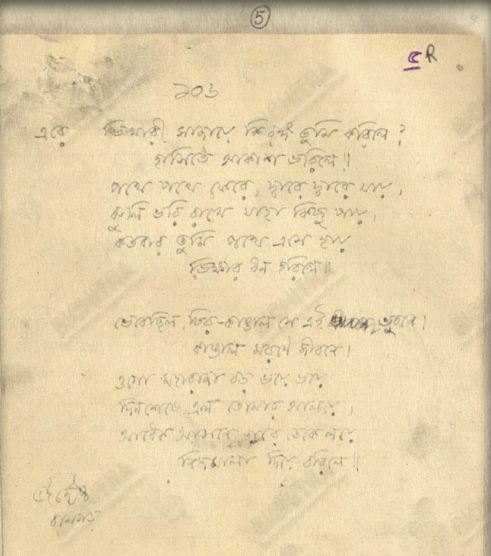 5
৫ R
১০৬
এরে ভিখারী সাজায়ে কি রঙ্গ তুমি করিলে?
হাসিতে আকাশ ভরিলে॥
পথে পথে ফেরে, দ্বারে দ্বারে যায়,
ঝুলি ভরি রাখে যাহা কিছু পায়,
কতবার তুমি পথে এসে হায়
ভিক্ষার ধন হরিলে॥
ভেবেছিল চির-কাঙাল সে এই ভুবনে।
কাঙাল মরণে জীবনে।
ওগো মহারাজা বড় ভয়ে ভয়ে
দিনশেষে এল তোমার আলয়ে,
আধেক আসনে তারে ডেকে লয়ে
নিজমালা দিয়ে বরিলে॥